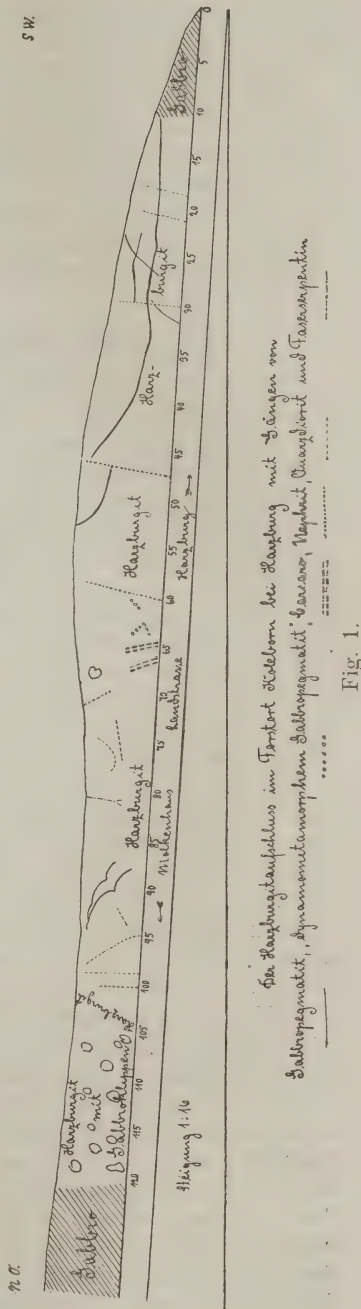 N.O.
S.W.
Gabbro
Harzburgit
mit
Gabbroklippen
Harzburgit
Harzburgit
Harz-
burgit
Gabbro
120 115 110 105 100 95 90 85 80 75 70 65 60 55 50 45 40 35 30 25 20 15 10 5 0
Steigung 1:16
Molkenhaus
Landstrasse
Harzburg
Der Harzburgitaufschluss im Forstort Koleborn bei Harzburg mit Gängen von
Gabbropegmatit, „dynamometamorphem Gabbropegmatit", Nephrit, Quarzdiorit und Faserserpentin
Fig. 1.